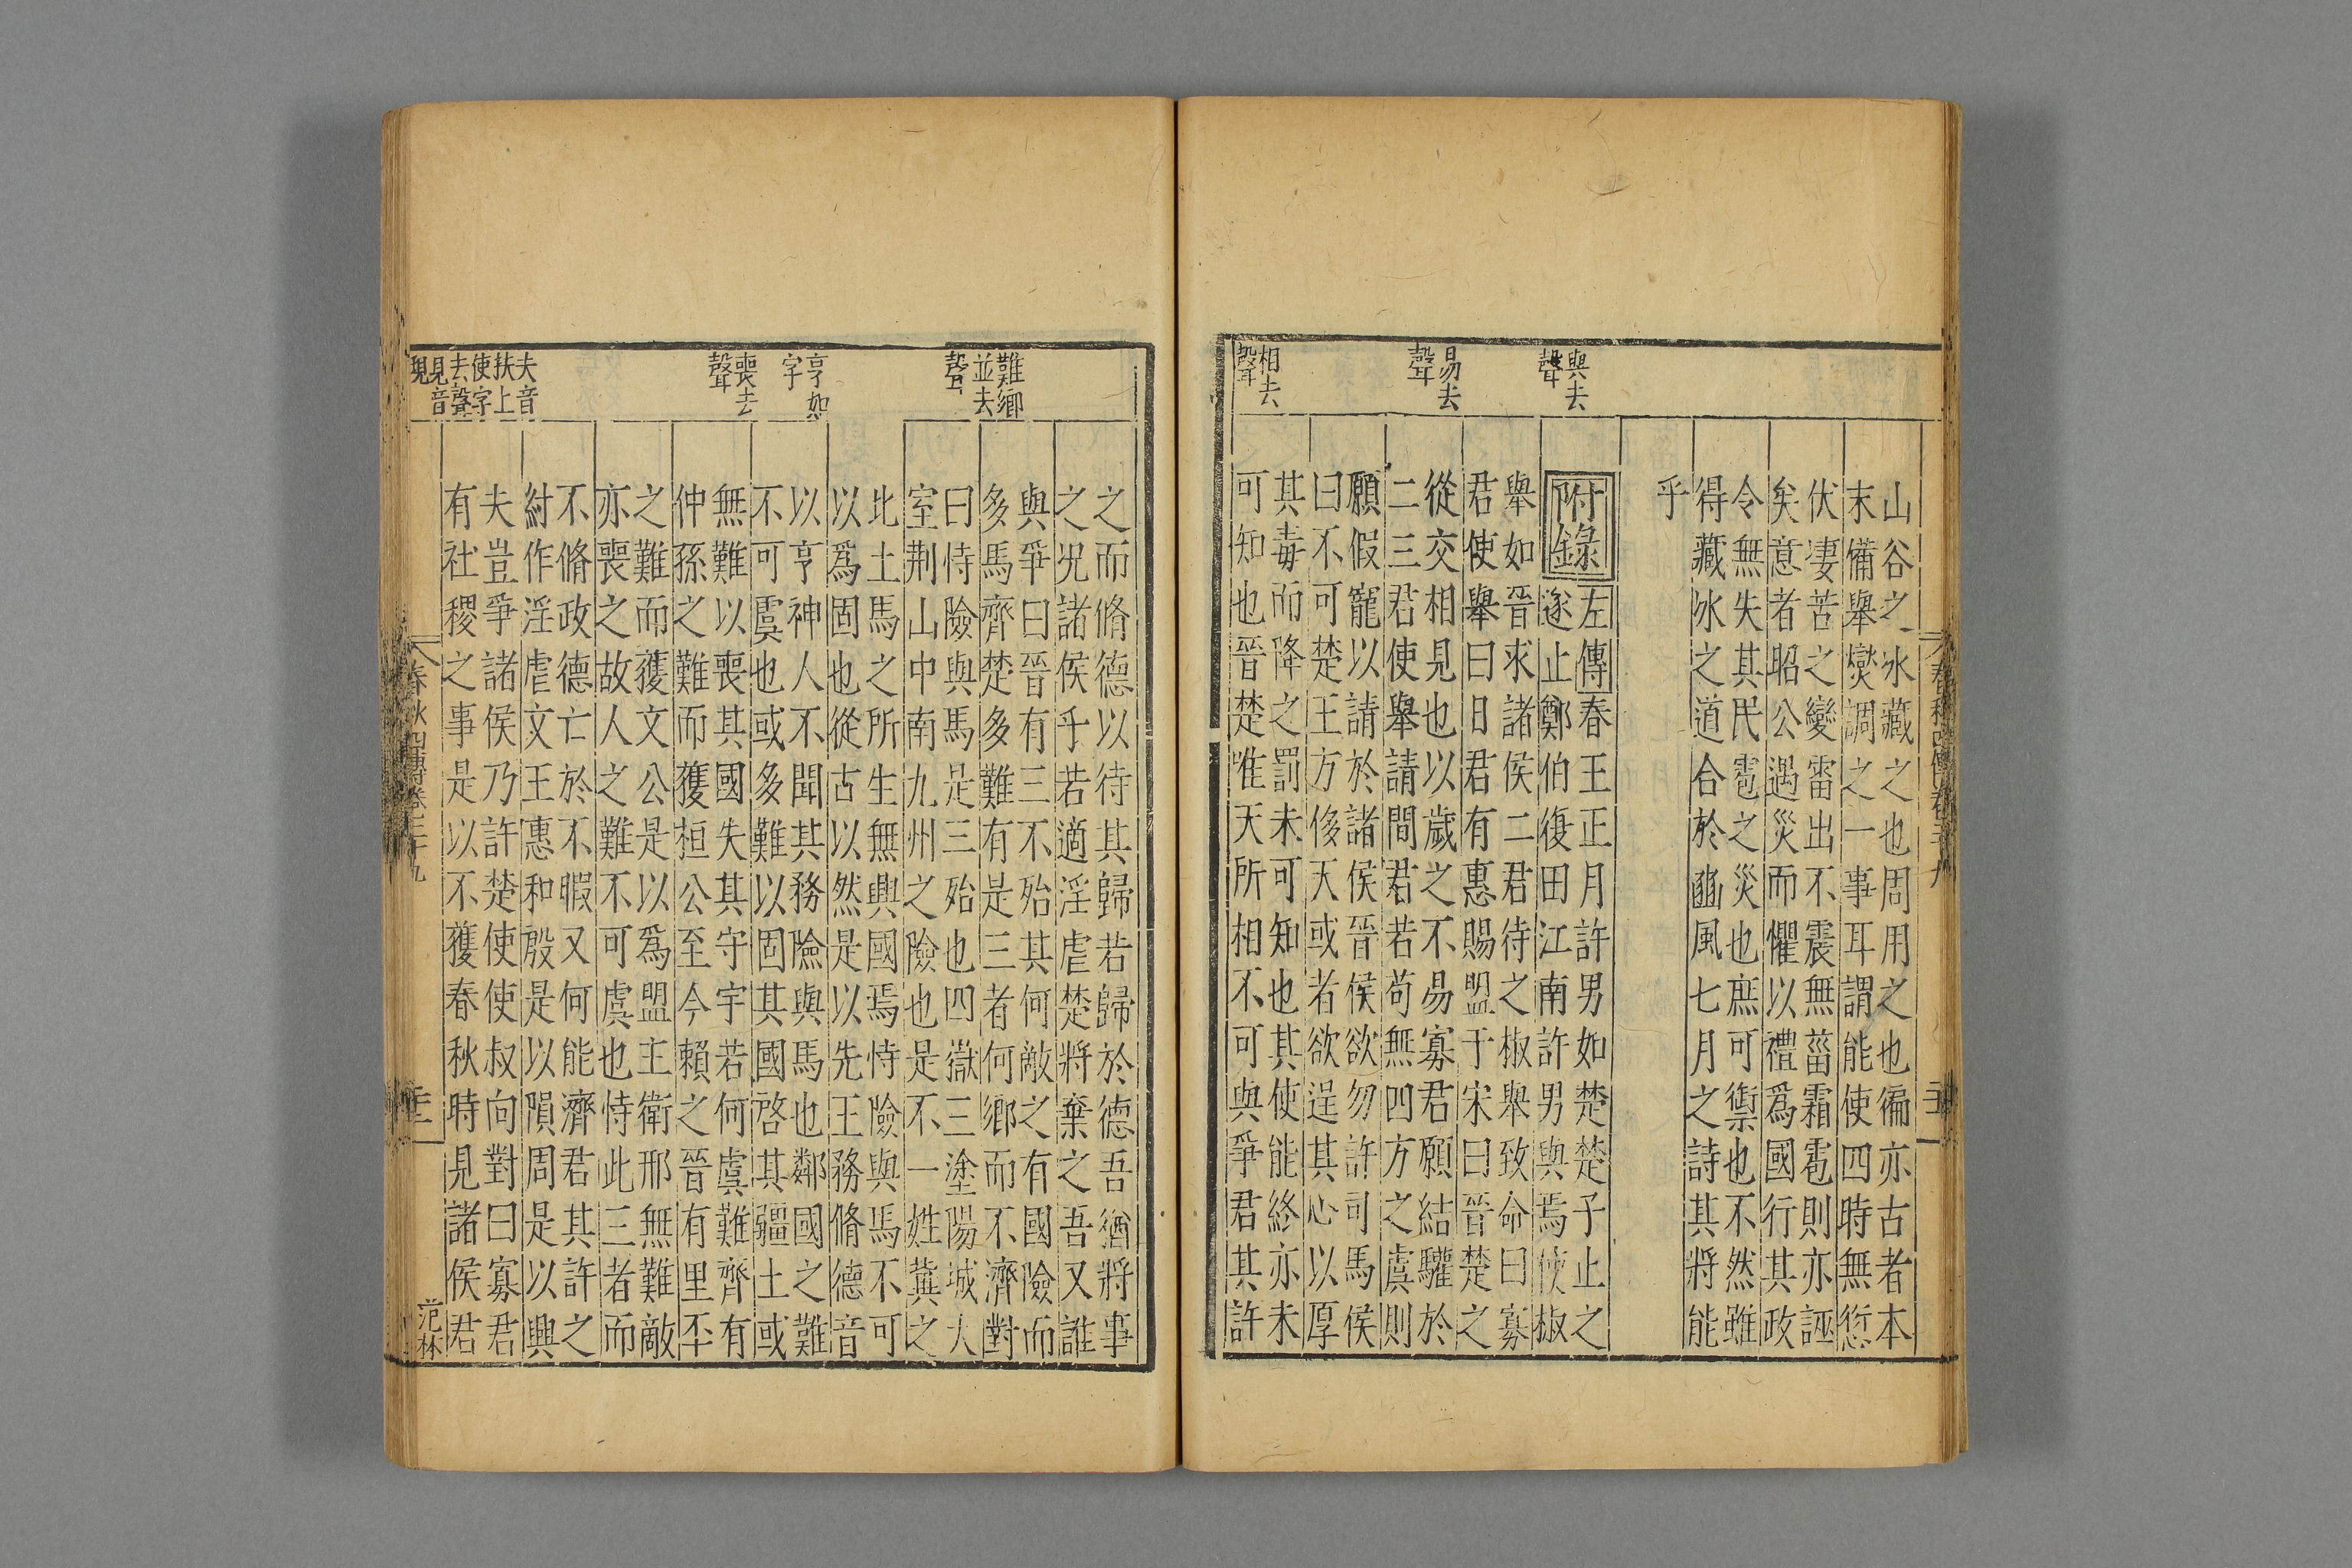 山谷之冰藏之也周用之也徧亦古者本
末備舉爕調之一事耳謂能使四時無愆
伏凄苦之變雷出不震無菑霜雹則亦誣
矣意者昭公遇災而懼以禮爲國行其政
令無失其民雹之災也庶可禦也不然雖
得藏冰之道合於豳風七月之詩其將能
乎
附錄
左傳春王正月許男如楚楚子止之
遂止鄭伯復田江南許男與焉使椒
舉如晉求諸侯二君待之椒舉致命曰寡
君使舉曰日君有惠賜盟于宋曰晉楚之
從交相見也以歲之不易寡君願結驩於
二三君使舉請間君若苟無四方之虞則
願假寵以請於諸侯晉侯欲勿許司馬侯
曰不可楚王方侈天或者欲逞其心以厚
其毒而降之罰未可知也其使能終亦未
可知也晉楚唯天所相不可與爭君其許
與去
聲
易去
聲
相去
聲
之而脩德以待其歸若歸於德吾猶將事
之況諸侯乎若適淫虐楚將棄之吾又誰
與爭曰晉有三不殆其何敵之有國險而
多馬齊楚多難有是三者何鄉而不濟對
曰恃險與馬是三殆也四嶽三塗陽城大
室荆山中南九州之險也是不一姓冀之
北土馬之所生無興國焉恃險與馬不可
以爲固也從古以然是以先王務脩德音
以亨神人不聞其務險與馬也鄰國之難
不可虞也或多難以固其國啓其疆土或
無難以喪其國失其守宇若何虞難齊有
仲孫之難而獲桓公至今賴之晉有里丕
之難而獲文公是以爲盟主衛邢無難敵
亦喪之故人之難不可虞也恃此三者而
不脩政德亡於不暇又何能濟君其許之
紂作淫虐文王惠和殷是以隕周是以興
夫豈爭諸侯乃許楚使使叔向對曰寡君
有社稷之事是以不獲春秋時見諸侯君
難鄉
並去
聲
亨如
字
喪去
聲
夫音
扶上
使字
去聲
見音
現
春秋四傳卷二十九
范林